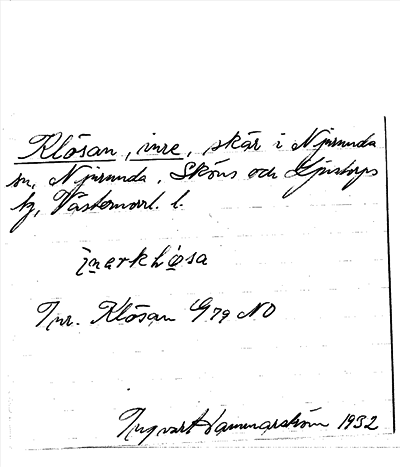 Klösan, inre, skär i Njurunda
sn, Njurunda, Sköns och Ljustorps
tg, Västernorrl. l.
Inr. Klösan G 79 NO
Ingvart Hammarström 1932